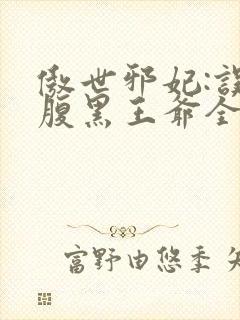 傲世邪妃:误
腹黑王爷全
富野由悠季 矢